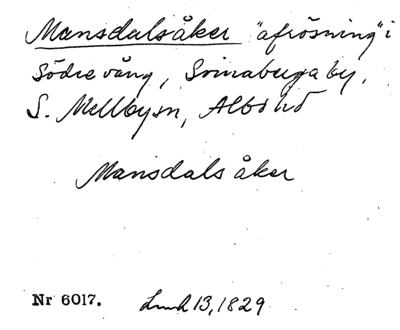 Mansdalsåker "afrösning" i
Södre vång, Svinaberga by,
S. Mellby sn, Albo hd
Mansdals åker
Nr 6017. Lund 13, 1829